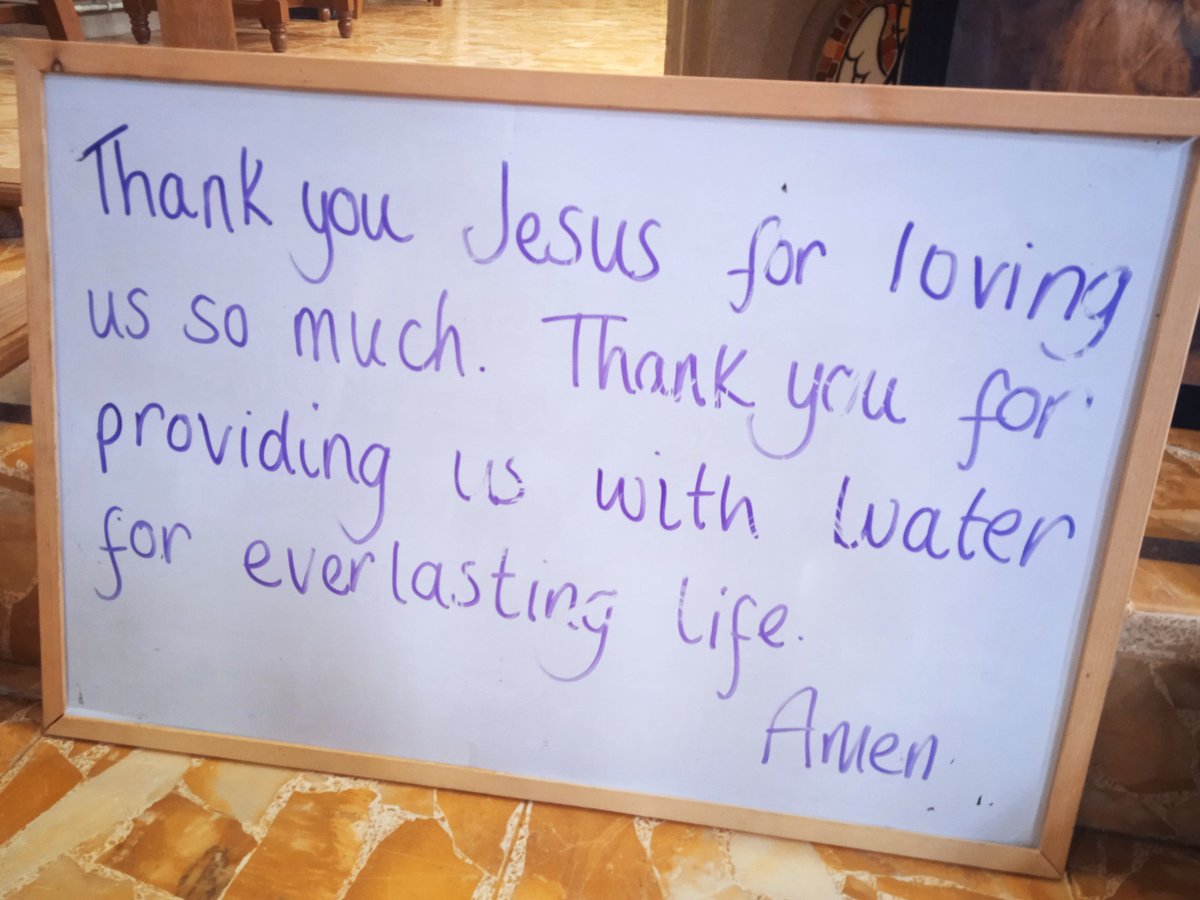 Thank you Jesus for loving
us so much. Thank you for
providing us with water
for everlasting life.
Amen